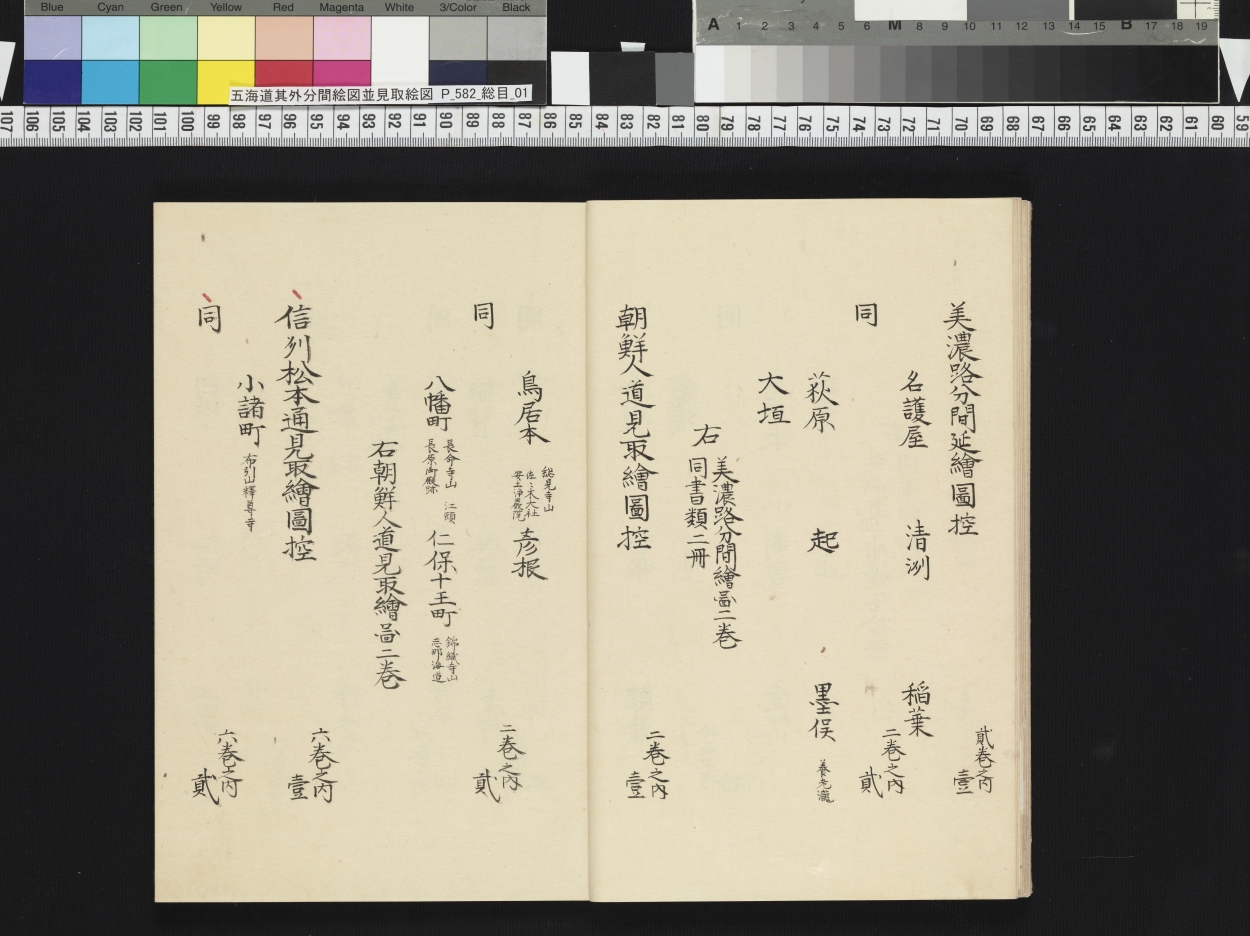 Blue Cyan Green Yellow Red Magenta White 3/Color Black
A 1 2 3 4 5 6 M 8 9 10 11 12 13 14 15 B 17 18 19
五海道其外分間絵図並見取絵図 P_582_総目_01
107 106 105 104 103 102 101 100 99 98 97 96 95 94 93 92 91 90 89 88 87 86 85 84 83 82 81 80 79 78 77 76 75 74 73 72 71 70 69 68 67 66 65 64 63 62 61 60 59
美濃路分間延繪圖控
貳巻之内
壹
名護屋 清洲 稲葉
同
二巻之内
貳
萩原 起 墨俣 養老瀧
大垣
右
美濃路分間繪啚二巻
同書類二冊
朝鮮人道見取繪圖控
二巻之内
壹
鳥居本
総見寺山
佐々木大社
安土浄厳院
彦根
同
二巻之内
貳
八幡町
長命寺山 江頭
長原御殿跡
仁保十王町
錦織寺山
志那海道
右朝鮮人道見取繪啚二巻
信州松本通見取繪圖控
六巻之内
壹
小諸町 布引山釋尊寺
同
六巻之内
貳